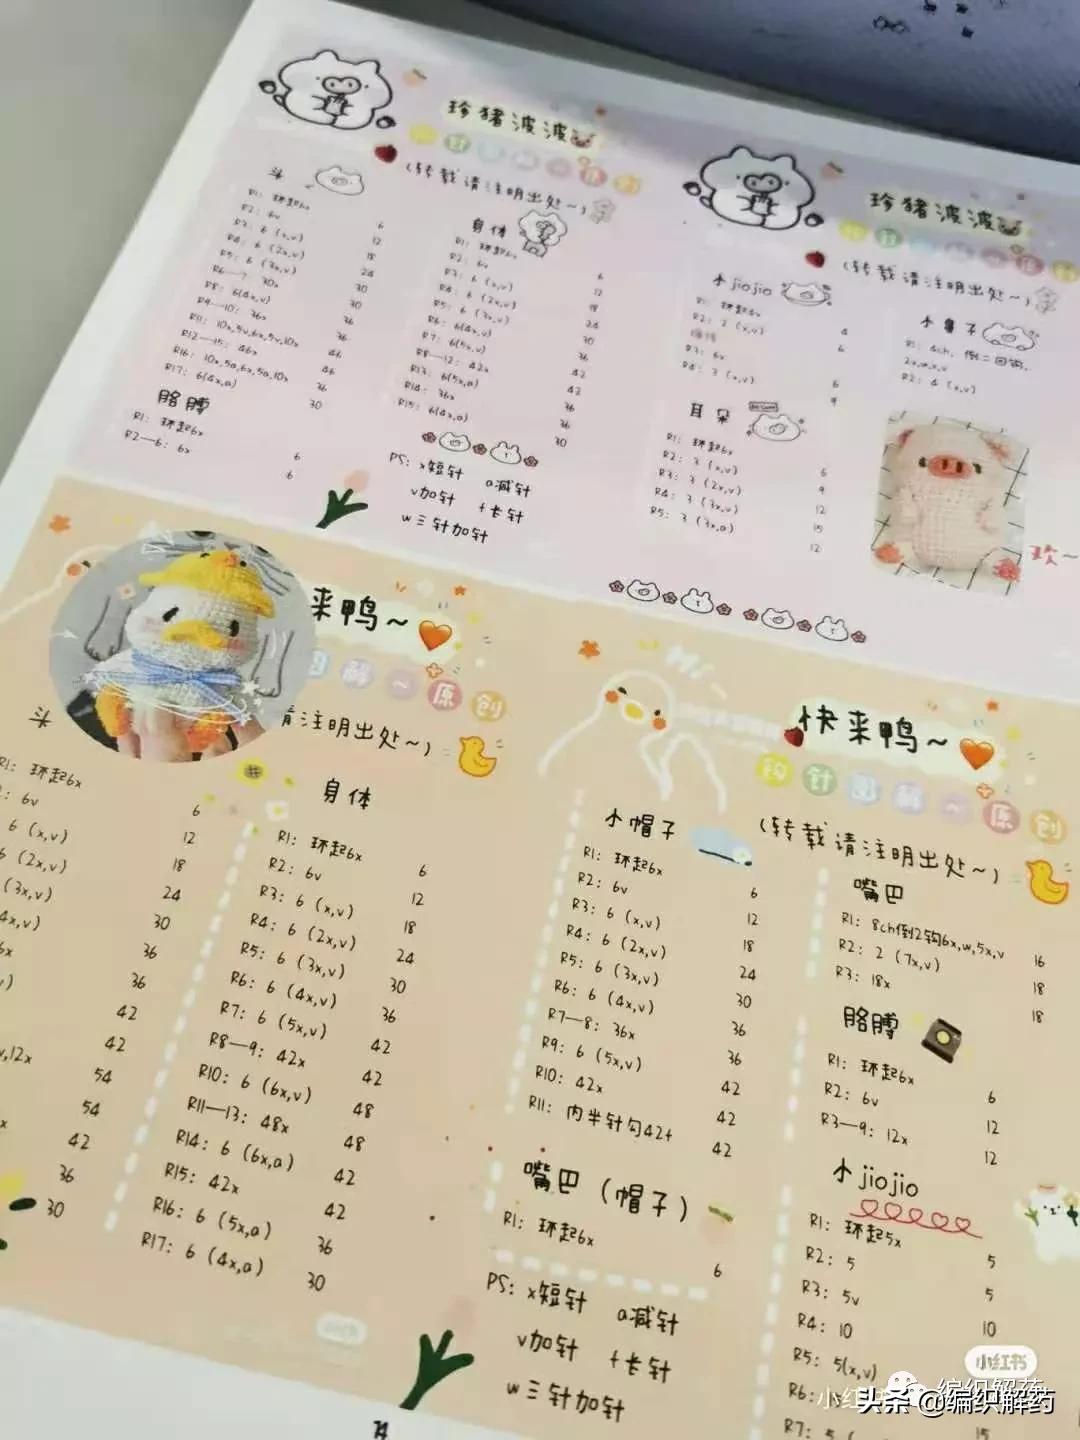 珍猪波波
(转载请注明出处~)
头
R1: 环起6x 6
R2: 6v 12
R3: 6 (x,v) 18
R4: 6 (2x,v) 24
R5: 6 (3x,v) 30
R6—7: 30x 30
R8: 6(4x,v) 36
R9—10: 36x 36
R11: 10x,5v,6x,5v,10x 46
R12—15: 46x 46
R16: 10x,5a,6x,5a,10x 36
R17: 6(4x,a) 30
胳膊
R1: 环起6x 6
R2—6: 6x 6
身体
R1: 环起6x 6
R2: 6v 12
R3: 6 (x,v) 18
R4: 6 (2x,v) 24
R5: 6 (3x,v) 30
R6: 6(4x,v) 36
R7: 6(5x,v) 42
R8—12: 42x 42
R13: 6(5x,a) 36
R14: 36x 36
R15: 6(4x,a) 30
PS: x短针 a减针
v加针 t长针
w三针加针
珍猪波波
(转载请注明出处~)
小jiojio
R1: 环起4x 4
R2: 2 (x,v) 6
R3: 6x 6
R4: 3 (x,v) 9
耳朵
R1: 环起6x 6
R2: 3 (x,v) 9
R3: 3 (2x,v) 12
R4: 3 (3x,v) 15
R5: 3 (3x,a) 12
小鼻子
R1: 4ch, 倒二回钩,
R2: 4 (x,v)
来鸭~
图解~原创
请注明出处~)
头
R1: 环起6x 6
: 6v 12
6 (x,v) 18
6 (2x,v) 24
(3x,v) 30
4x,v) 36
6x 36
) 42
42
v,12x 54
54
x 42
36
30
身体
R1: 环起6x 6
R2: 6v 12
R3: 6 (x,v) 18
R4: 6 (2x,v) 24
R5: 6 (3x,v) 30
R6: 6 (4x,v) 36
R7: 6 (5x,v) 42
R8—9: 42x 42
R10: 6 (6x,v) 48
R11—13: 48x 48
R14: 6 (6x,a) 42
R15: 42x 42
R16: 6 (5x,a) 36
R17: 6 (4x,a) 30
Hi~
快来鸭~
钩针图解~原创
(转载请注明出处~)
小帽子
R1: 环起6x 6
R2: 6v 12
R3: 6 (x,v) 18
R4: 6 (2x,v) 24
R5: 6 (3x,v) 30
R6: 6 (4x,v) 36
R7—8: 36x 36
R9: 6 (5x,v) 42
R10: 42x 42
R11: 内半针勾42t 42
嘴巴 (帽子)
R1: 环起6x 6
PS: x短针 a减针
v加针 t长针
w三针加针
嘴巴
R1: 8ch倒2钩6x,w,5x,v 16
R2: 2 (7x,v) 18
R3: 18x 18
胳膊
R1: 环起6x 6
R2: 6v 12
R3—9: 12x 12
小jiojio
R1: 环起5x 5
R2: 5 5
R3: 5v 10
R4: 10
R5: 5(x,v)
R6: 15
R7: 5
小红书
编织解药
头条 @编织解药
74